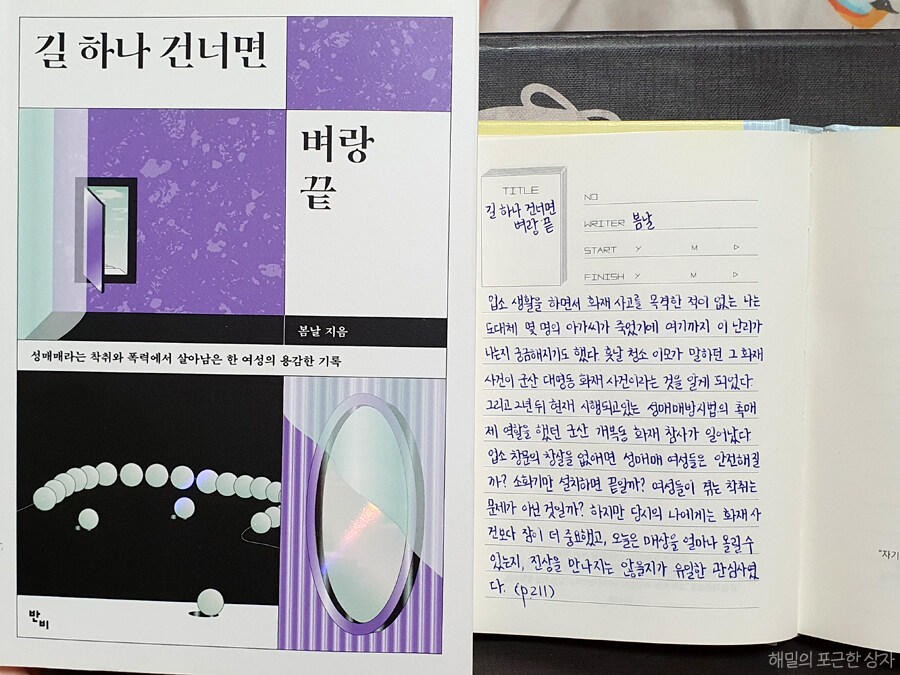 길 하나 건너면
벼랑
끝
봄날 지음
성매매라는 착취와 폭력에서 살아남은 한 여성의 용감한 기록
반비
TITLE
길 하나 건너면
벼랑 끝
NO
WRITER 봄날
START Y M D
FINISH Y M D
업소 생활을 하면서 화재 사고를 목격한 적이 없는 나는
도대체 몇 명의 아가씨가 죽었기에 여기까지 이 난리가
나는지 궁금해지기도 했다. 훗날 청소 이모가 말하던 그 화재
사건이 군산 대명동 화재 사건이라는 것을 알게 되었다.
그리고 2년 뒤 현재 시행되고있는 성매매방지법의 촉매
제 역할을 했던 군산 개복동 화재 참사가 일어났다.
업소 창문의 창살을 없애면 성매매 여성들은 안전해질
까? 소화기만 설치하면 끝일까? 여성들이 겪는 착취는
문제가 아닌 것일까? 하지만 당시의 나에게는 화재 사
건보다 잠이 더 중요했고, 오늘은 매상을 얼마나 올릴 수
있는지, 진상을 만나지는 않을지가 유일한 관심사였
다. (p.211)
"자기
해밀의 포근한 상자